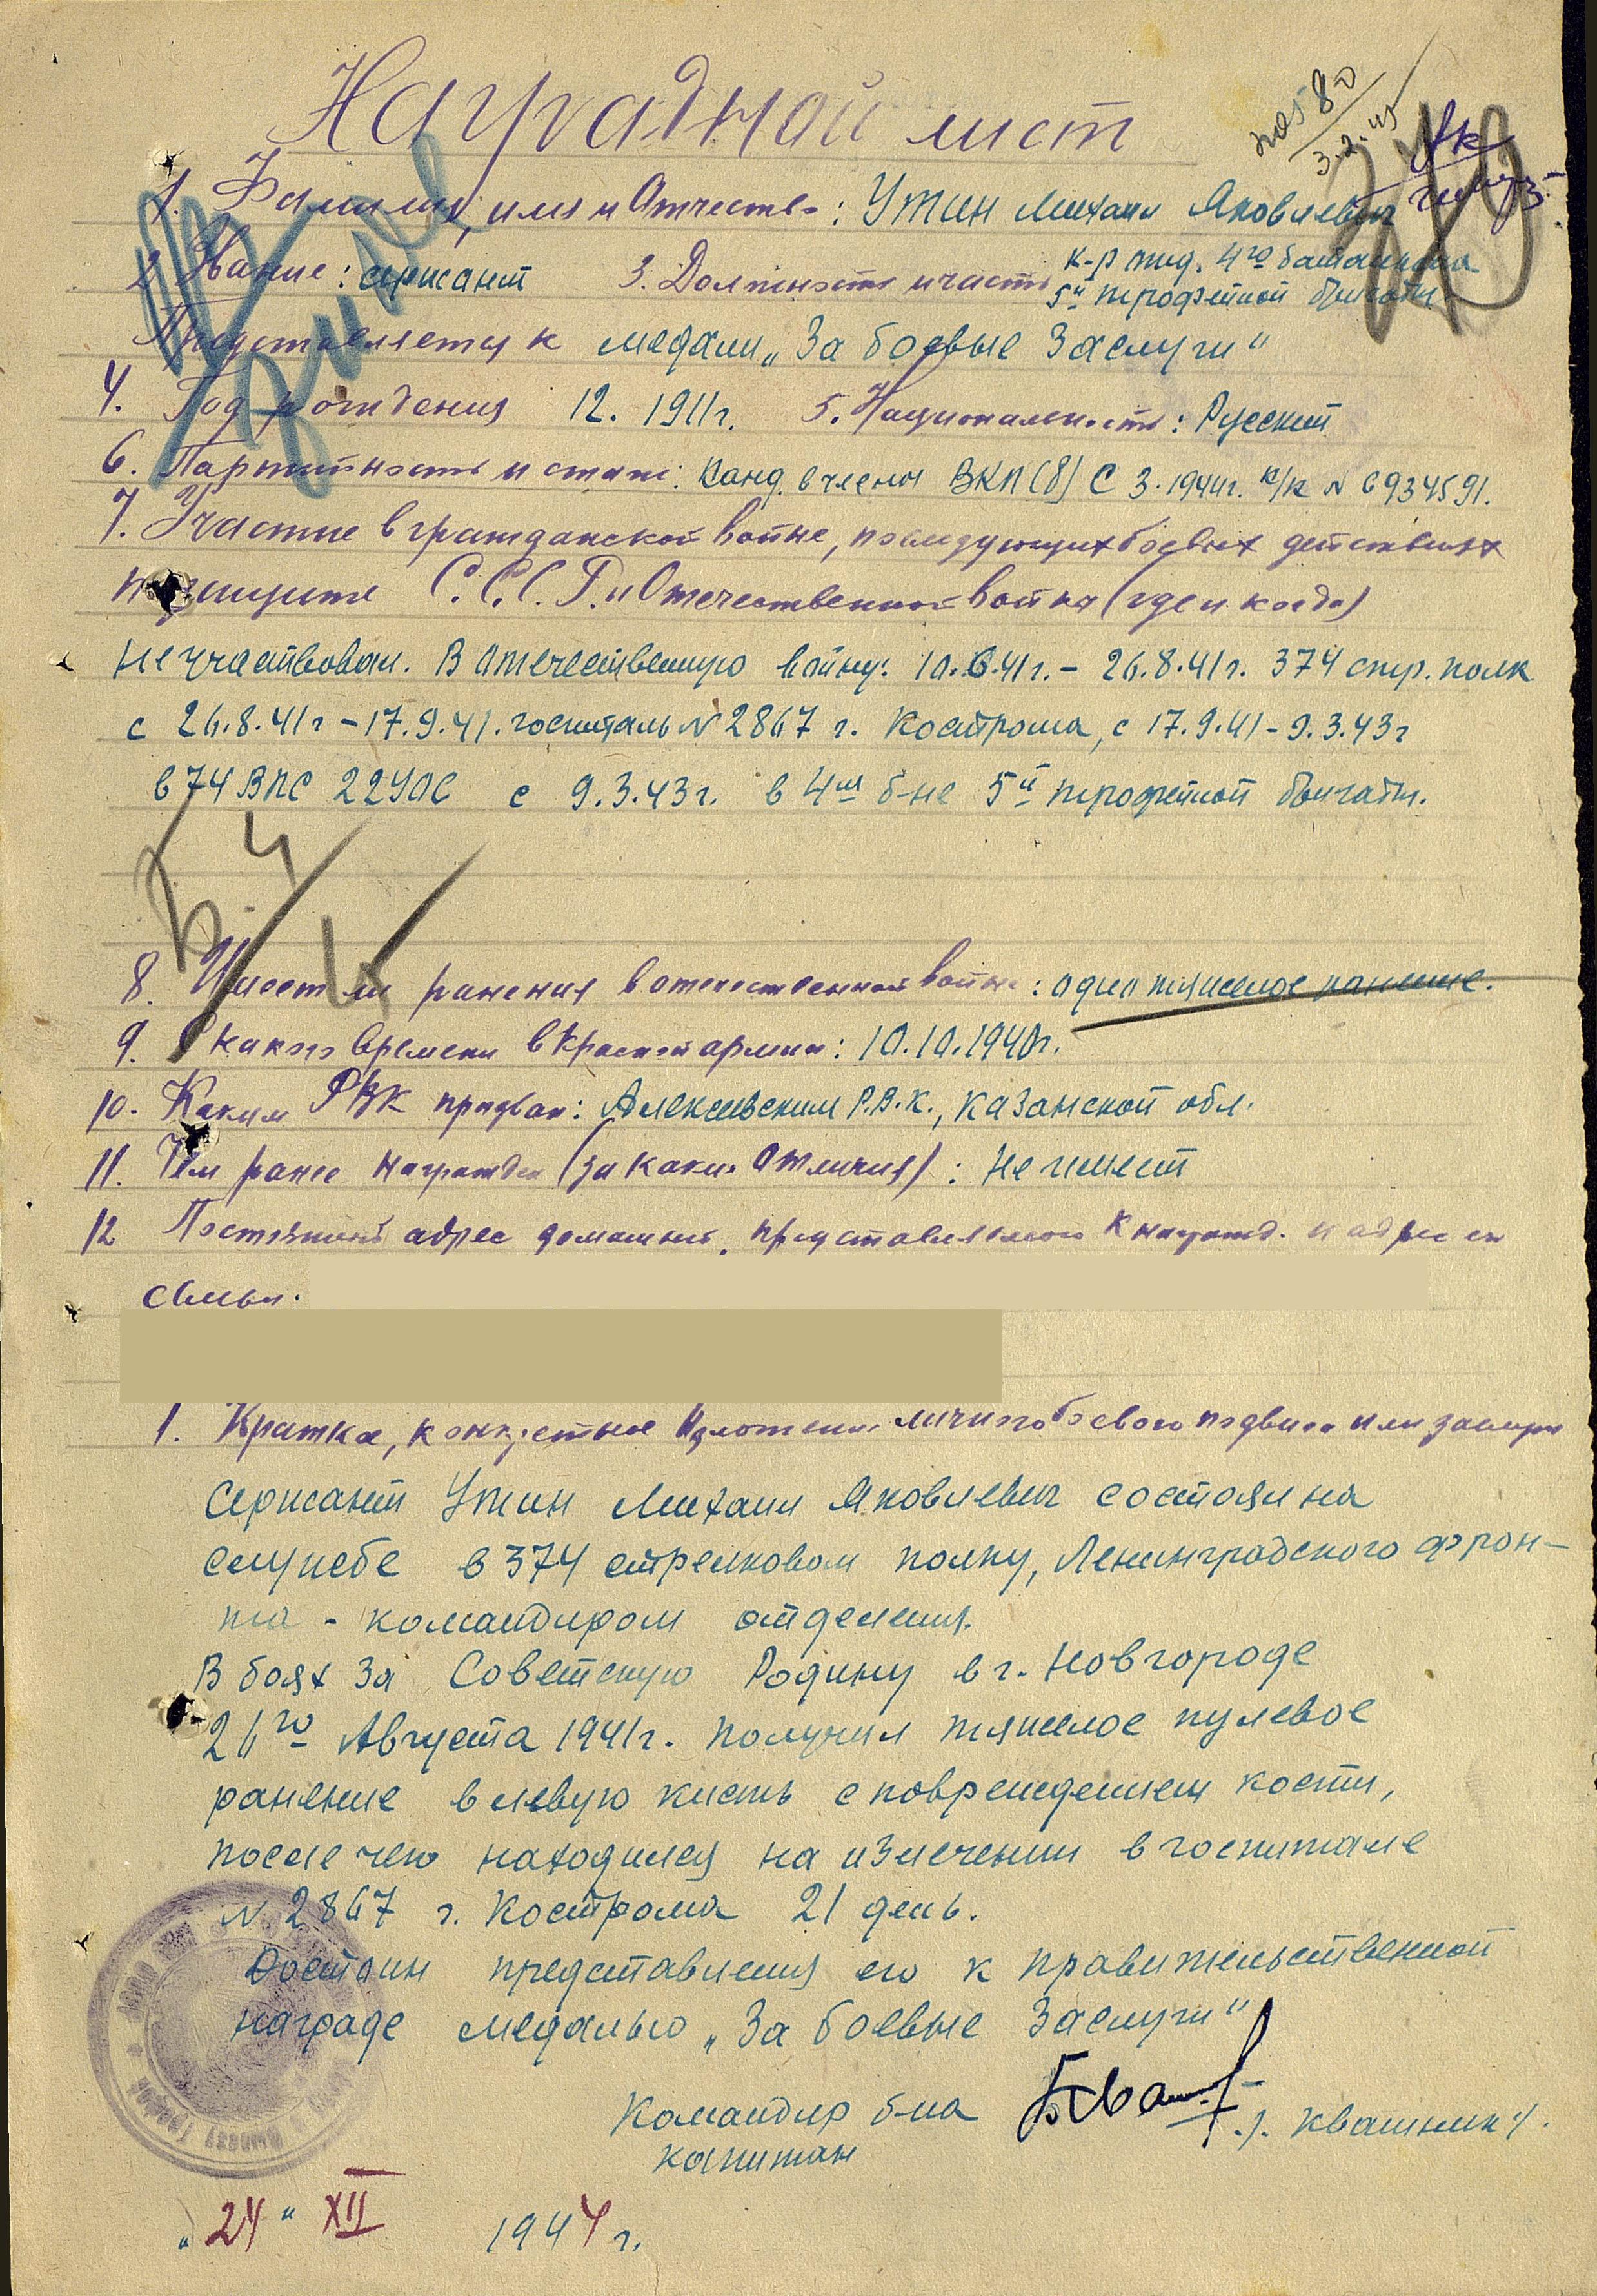 Наградной лист
1. Фамилия, имя и Отчество: Утин Михаил Яковлевич
2. Звание: сержант 3. Должность и часть к-р отд. 4го батальона
5й трофейной бригады
Представляется к медали „За боевые заслуги“
4. Год рождения 12. 1911г. 5. Национальность: Русский
6. Партийность и стаж: Канд. в члены ВКП(б) с 3.1944г. к/к № 6934591.
7. Участие в гражданской войне, последующих боевых действиях
по защите С.С.С.Р. и Отечественной войне (где и когда)
Не участвовал. В Отечественную войну: 10.6.41г. - 26.8.41г. 374 стр. полк
с 26.8.41г - 17.9.41. госпиталь № 2867 г. Кострома, с 17.9.41 - 9.3.43г
в 74 ВПС 22 УОС с 9.3.43г. в 4м б-не 5й трофейной бригады.
8. Имеет ли ранения в отечественной войне: одно тяжелое ранение.
9. С какого времени в Красной армии: 10.10.1940г.
10. Каким РВК призван: Алексеевским Р.В.К., Казанской обл.
11. Чем ранее награжден (за какие отличия): Не имеет
12 Постоянный адрес домашний, представляемого к награжд. и адрес его
семьи.
1. Кратко, конкретное изложение личного боевого подвига или заслуги
Сержант Утин Михаил Яковлевич состоял на
службе в 374 стрелковом полку, Ленинградского фрон-
та - командиром отделения.
В боях за Советскую Родину в г. Новгороде
26го Августа 1941г. получил тяжелое пулевое
ранение в левую кисть с повреждением кости,
после чего находился на излечении в госпитале
№ 2867 г. Кострома 21 день.
Достоин представления его к правительственной
награде медалью „За боевые заслуги“
Командир б-на
капитан Квашнин
„24“ XII 1944 г.